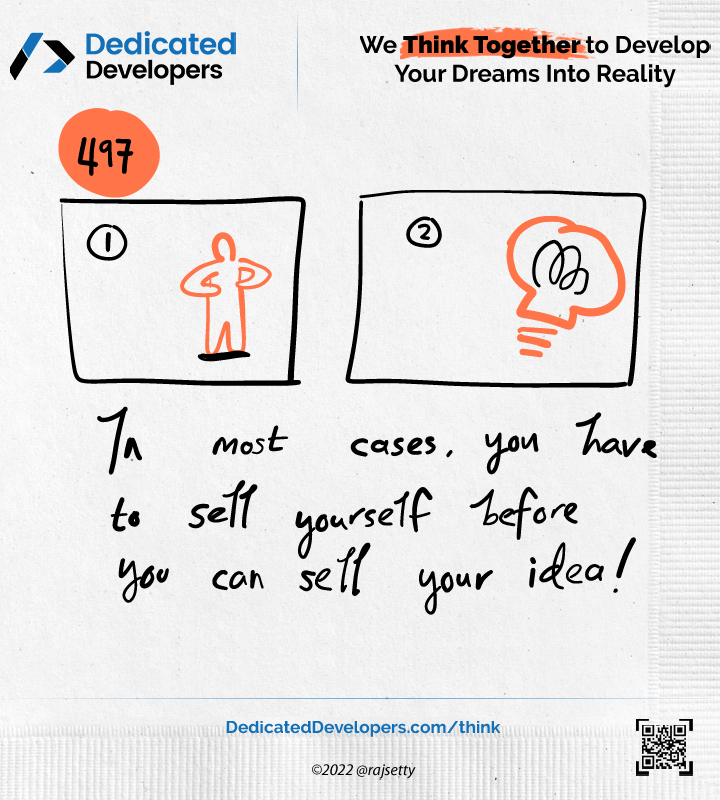 Dedicated
Developers
We Think Together to Develop
Your Dreams Into Reality
497
1
2
In most cases, you have
to sell yourself before
you can sell your idea!
DedicatedDevelopers.com/think
©2022 @rajsetty